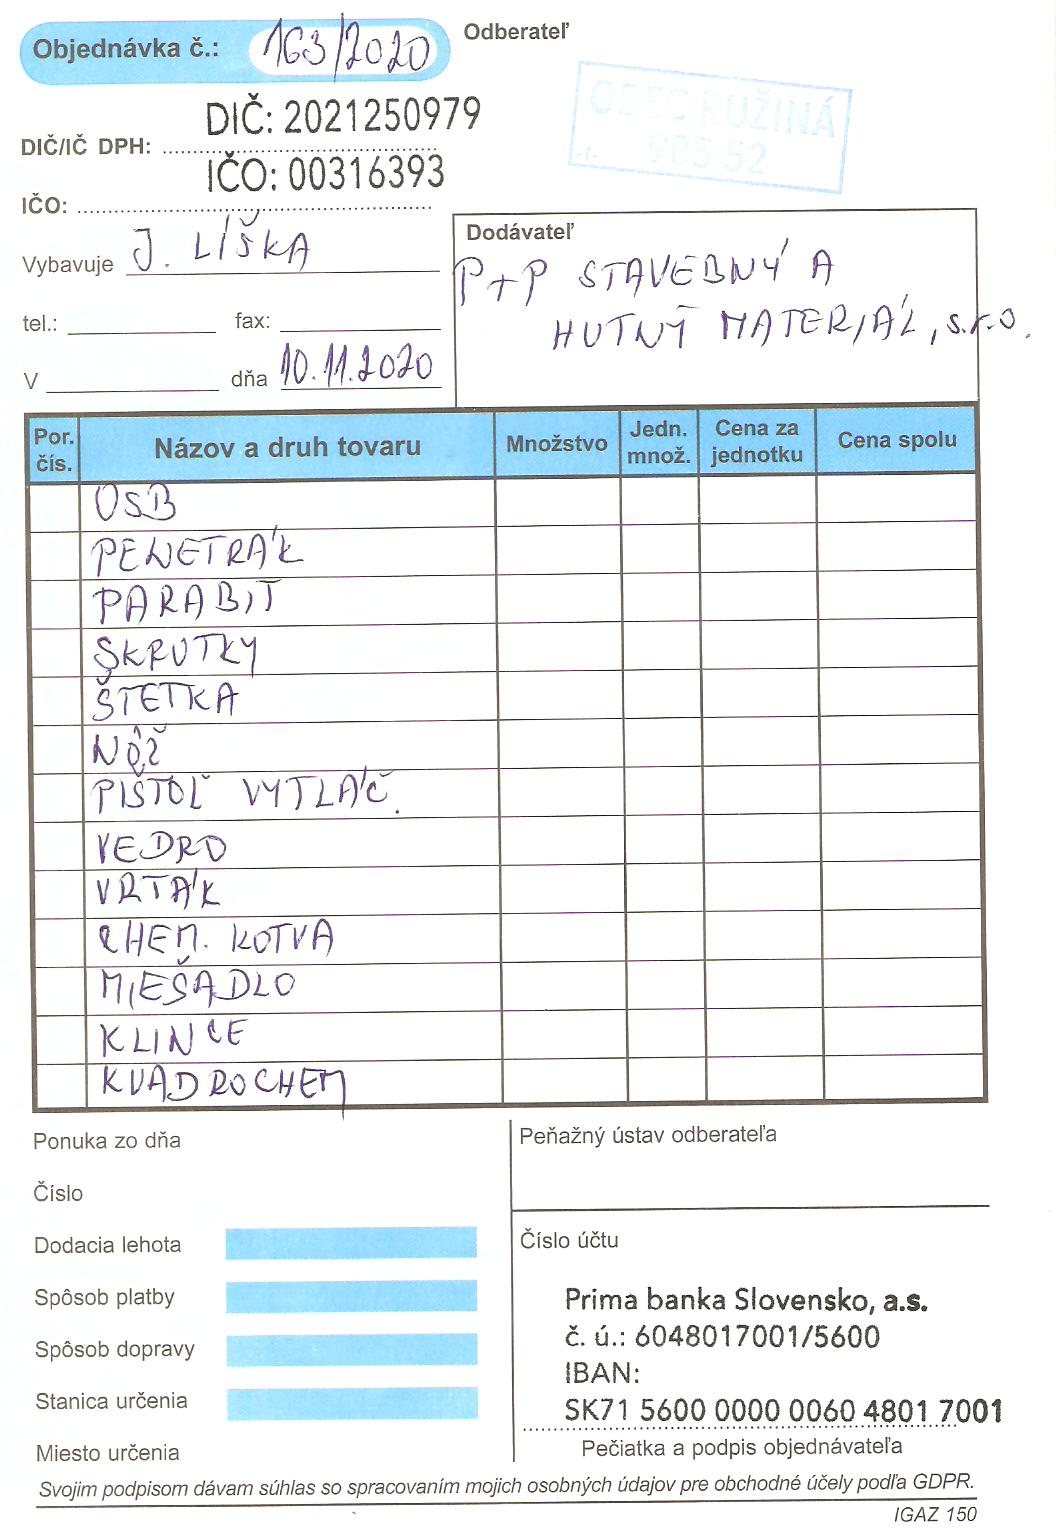 Objednávka č.: 163/2020
Odberateľ
OBEC RUŽINÁ
985 52
-1-
DIČ: 2021250979
DIČ/IČ DPH:
IČO: 00316393
IČO:
Vybavuje J. LÍŠKA
tel.: fax:
V dňa 10.11.2020
Dodávateľ
P+P STAVEBNÝ A
HUTNÝ MATERIÁL, s.r.o.
Por. čís. Názov a druh tovaru Množstvo Jedn. množ. Cena za jednotku Cena spolu
OSB
PENETRÁK
PARABIT
SKRUTKY
ŠTETKA
NÔŽ
PIŠTOĽ VYTLÁČ.
VEDRO
VRTÁK
CHEM. KOTVA
MIEŠADLO
KLINCE
KVADROCHEM
Ponuka zo dňa
Číslo
Dodacia lehota
Spôsob platby
Spôsob dopravy
Stanica určenia
Miesto určenia
Peňažný ústav odberateľa
Číslo účtu
Prima banka Slovensko, a.s.
č. ú.: 6048017001/5600
IBAN:
SK71 5600 0000 0060 4801 7001
Pečiatka a podpis objednávateľa
Svojim podpisom dávam súhlas so spracovaním mojich osobných údajov pre obchodné účely podľa GDPR.
IGAZ 150